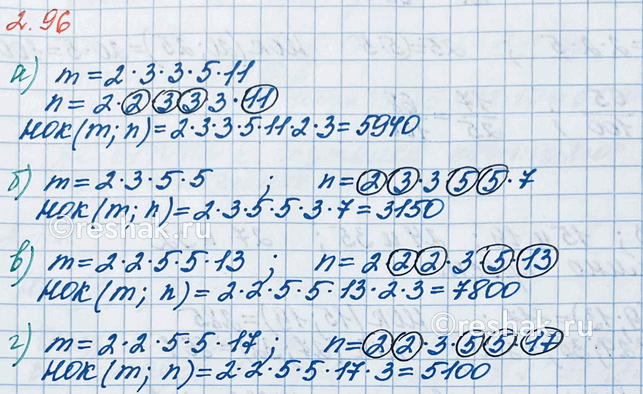 2.96
а) m = 2·3·3·5·11
n = 2·2·3·3·3·11
НОК(m; n) = 2·3·3·5·11·2·3 = 5940
б) m = 2·3·5·5 ; n = 2·3·3·5·5·7
НОК(m; n) = 2·3·5·5·3·7 = 3150
в) m = 2·2·5·5·13 ; n = 2·2·2·3·5·13
НОК(m; n) = 2·2·5·5·13·2·3 = 7800
г) m = 2·2·5·5·17 ; n = 2·2·3·5·5·17
НОК(m; n) = 2·2·5·5·17·3 = 5100
©reshak.ru